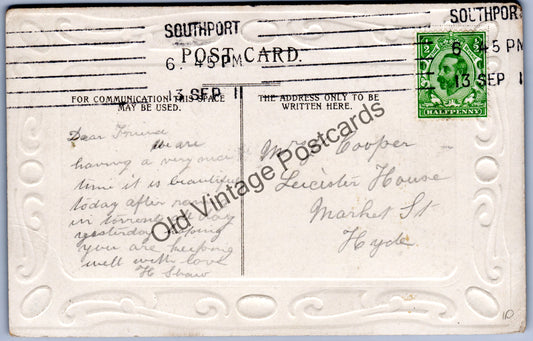 SOUTHPORT
6. 45 PM
13. SEP 11
SOUTHPOR
6 45 PM
13. SEP 1
POST CARD.
HALFPENNY
FOR COMMUNICATION THIS SPACE
MAY BE USED.
THE ADDRESS ONLY TO BE
WRITTEN HERE.
Dear Friend
We are
having a very nice
time it is beautiful
today after
in torrents all day
yesterday hoping
you are keeping
well with love
H Shaw
Mrs Cooper
Leicister House
Market St
Hyde.
Old Vintage Postcards